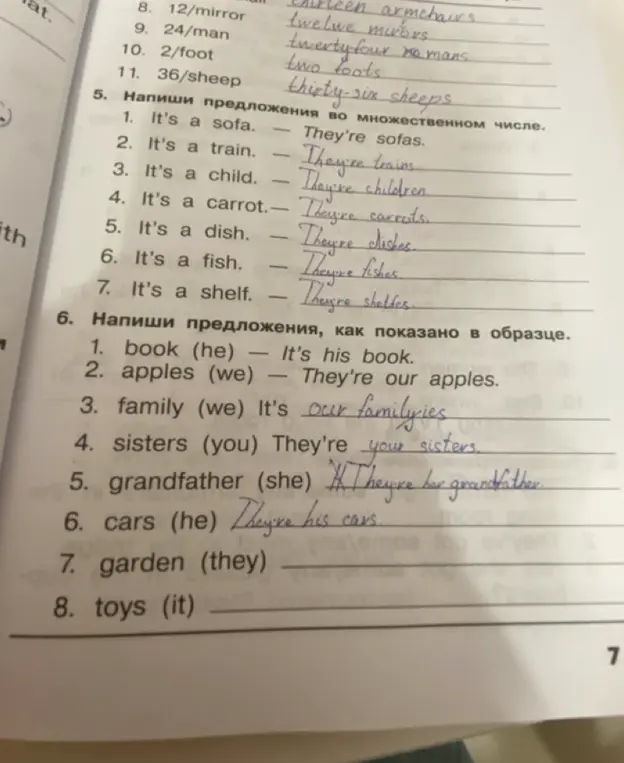 at.
thirteen armchairs
8. 12/mirror twelwe mirors
9. 24/man twentyfour mans
10. 2/foot two foots
11. 36/sheep thirty-six sheeps
5. Напиши предложения во множественном числе.
1. It's a sofa. — They're sofas.
2. It's a train. — They're trains
3. It's a child. — They're children
4. It's a carrot.— They're carrots.
5. It's a dish. — They're dishes.
ith
6. It's a fish. — They're fishes
7. It's a shelf. — They're shelfes.
6. Напиши предложения, как показано в образце.
1. book (he) — It's his book.
2. apples (we) — They're our apples.
3. family (we) It's our familyies
4. sisters (you) They're your sisters.
5. grandfather (she) They're her grandfather.
6. cars (he) They're his cars
7. garden (they)
8. toys (it)
7